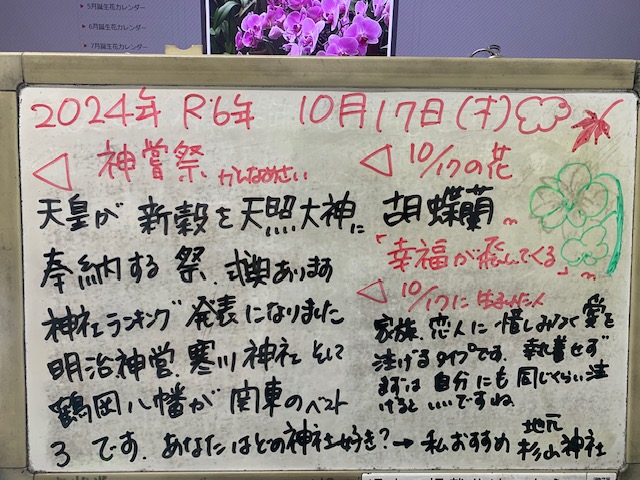 5月誕生花カレンダー
6月誕生花カレンダー
7月誕生花カレンダー
2024年 R6年 10月17日(木)
神嘗祭 かんなめさい
天皇が 新穀を 天照大神に
奉納する 祭、諸あります
神社ランキング 発表になりました
明治神宮、寒川神社 そして
鶴岡八幡が 関東のベスト
3 です. あなたはどの神社好き?→ 私おすすめ 地元 杉山神社
10/17の花
胡蝶蘭
「幸福が飛んでくる」
10/17に 生まれた人
家族、恋人に 惜しみなく 愛を
注げるタイプです. 執着せず
まずは 自分にも 同じくらい注
げると いいですね.